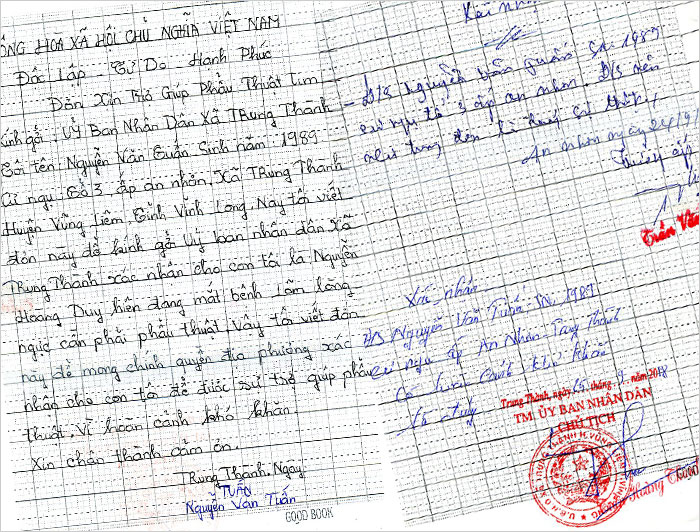 ỘNG HOA XÃ HỘI CHỦ NGHĨA VIỆT NAM
Độc Lập - Tự Do - Hạnh Phúc
Đơn Xin Trợ Giúp Phẩu Thuật Tim
ính gởi: Uỷ Ban Nhân Dân Xã TRung Thành
Tôi tên Nguyễn Văn Tuấn Sinh năm: 1989
Cư ngụ tổ 3 ấp an nhơn. Xã TRung Thành
Huyện Vũng liêm Tỉnh Vĩnh Long. Nay tôi viết
đơn này để kính gởi Uỷ ban nhân dân Xã
TRung Thành xác nhân cho con tôi là Nguyễn
Hoàng Duy hiện đang mắt bệnh Lõm lòng
ngực cần phải phẩu thuật. Vậy tôi viết đơn
này để mong chính quyền địa phương xác
nhân cho con tôi để được sự trợ giúp phẩu
thuật. Vì hoàn cảnh khó khăn
Xin chân thành cảm ơn.
Rung Thanh. Ngay
TUẤN
Nguyễn Văn Tuấn
GOOD BOOK
- Đ/s Nguyễn Văn Tuấn Sn 1989
cư ngụ tổ 3 ấp an nhơn. Đ/s nên
như trong đơn là đúng sự thật
An nhơn ngày 24/9
Trưởng ấp
Trần Vă
Xác nhận
Đ/s Nguyễn Văn Tuấn Sn 1989
cư ngụ ấp An Nhơn Trung Thành
Có hoàn cảnh khó khăn
là đúng
Trung Thành, ngày 25 tháng 9 năm 2018
TM. ỦY BAN NHÂN DÂN
CHỦ TỊCH
Hoàng
GOOD